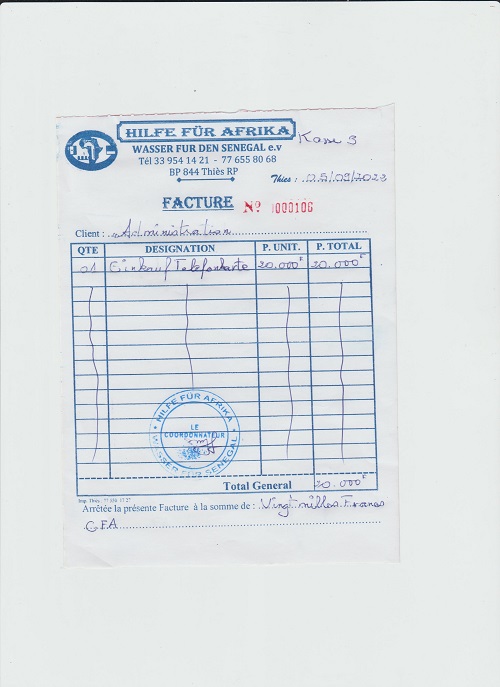 HILFE FÜR AFRIKA
WASSER FUR DEN SENEGAL e.v
Kasse 3
Tél 33 954 14 21 - 77 655 80 68
BP 844 Thiès RP
Thies : 05/09/2023
FACTURE N° 000106
Client : Administration
QTE DESIGNATION P. UNIT. P. TOTAL
01 Einkauf Telefonkarte 20.000F 20.000F
HILFE FÜR AFRIKA
LE
COORDONNATEUR
WASSER FÜR SENEGAL
Total General 20.000F
Imp. Thiès : 77 17 27
Arrêtée la présente Facture à la somme de : Vingt milles Francs
CFA